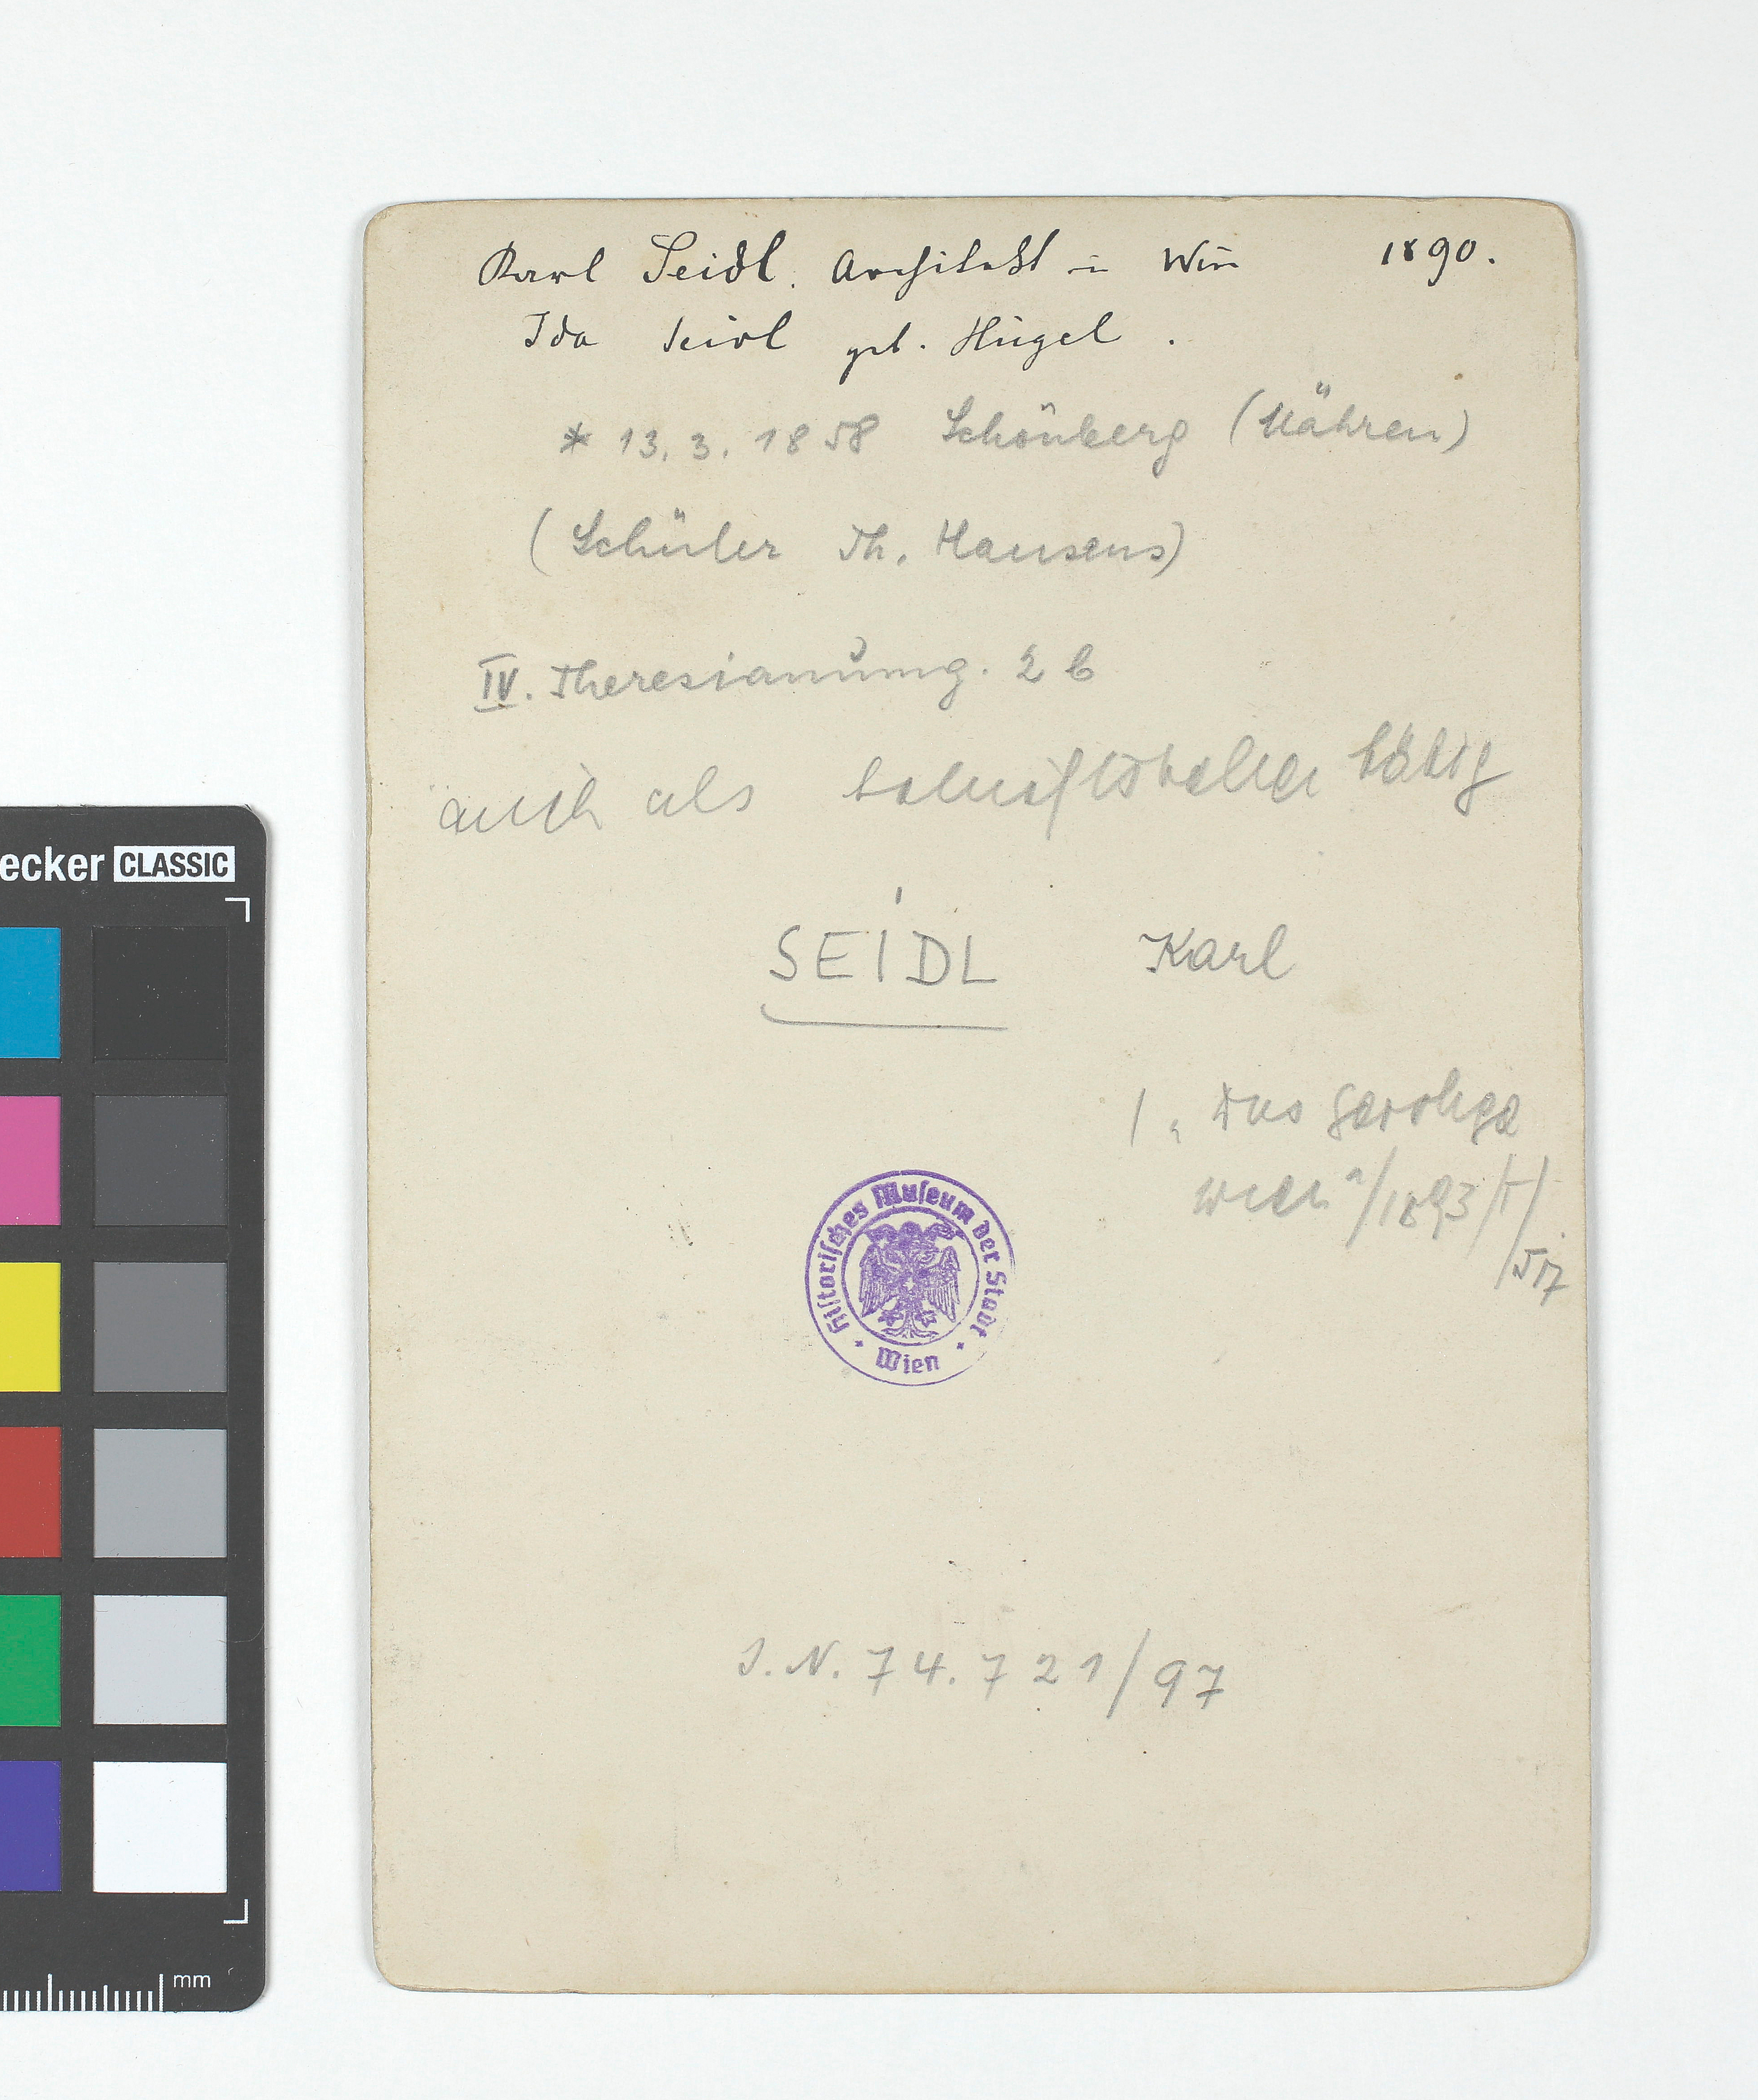 Karl Seidl. Architekt in Wien 1890.
Ida Seidl geb. Hügel.
* 13. 3. 1858 Schönberg (Mähren)
(Schüler Th. Hansens)
IV. Theresianumg. 2 b
auch als Schriftsteller tätig
SEIDL Karl
/ „Das geistige
Wien"/1893/I/
/517
Historisches Museum der Stadt
Wien
I. N. 74.721/97
ecker CLASSIC
mm